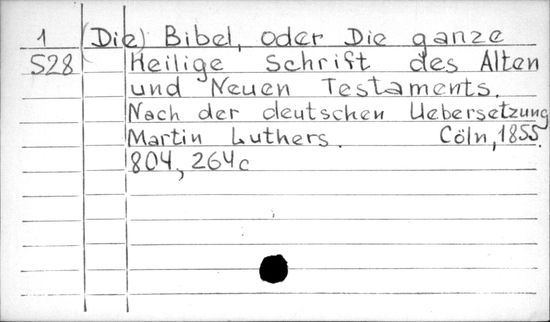 1 (Die) Bibel, oder Die ganze
S28 Heilige Schrift des Alten
und Neuen Testaments.
Nach der deutschen Uebersetzung
Martin Luthers. Cöln, 1855.
804, 264c